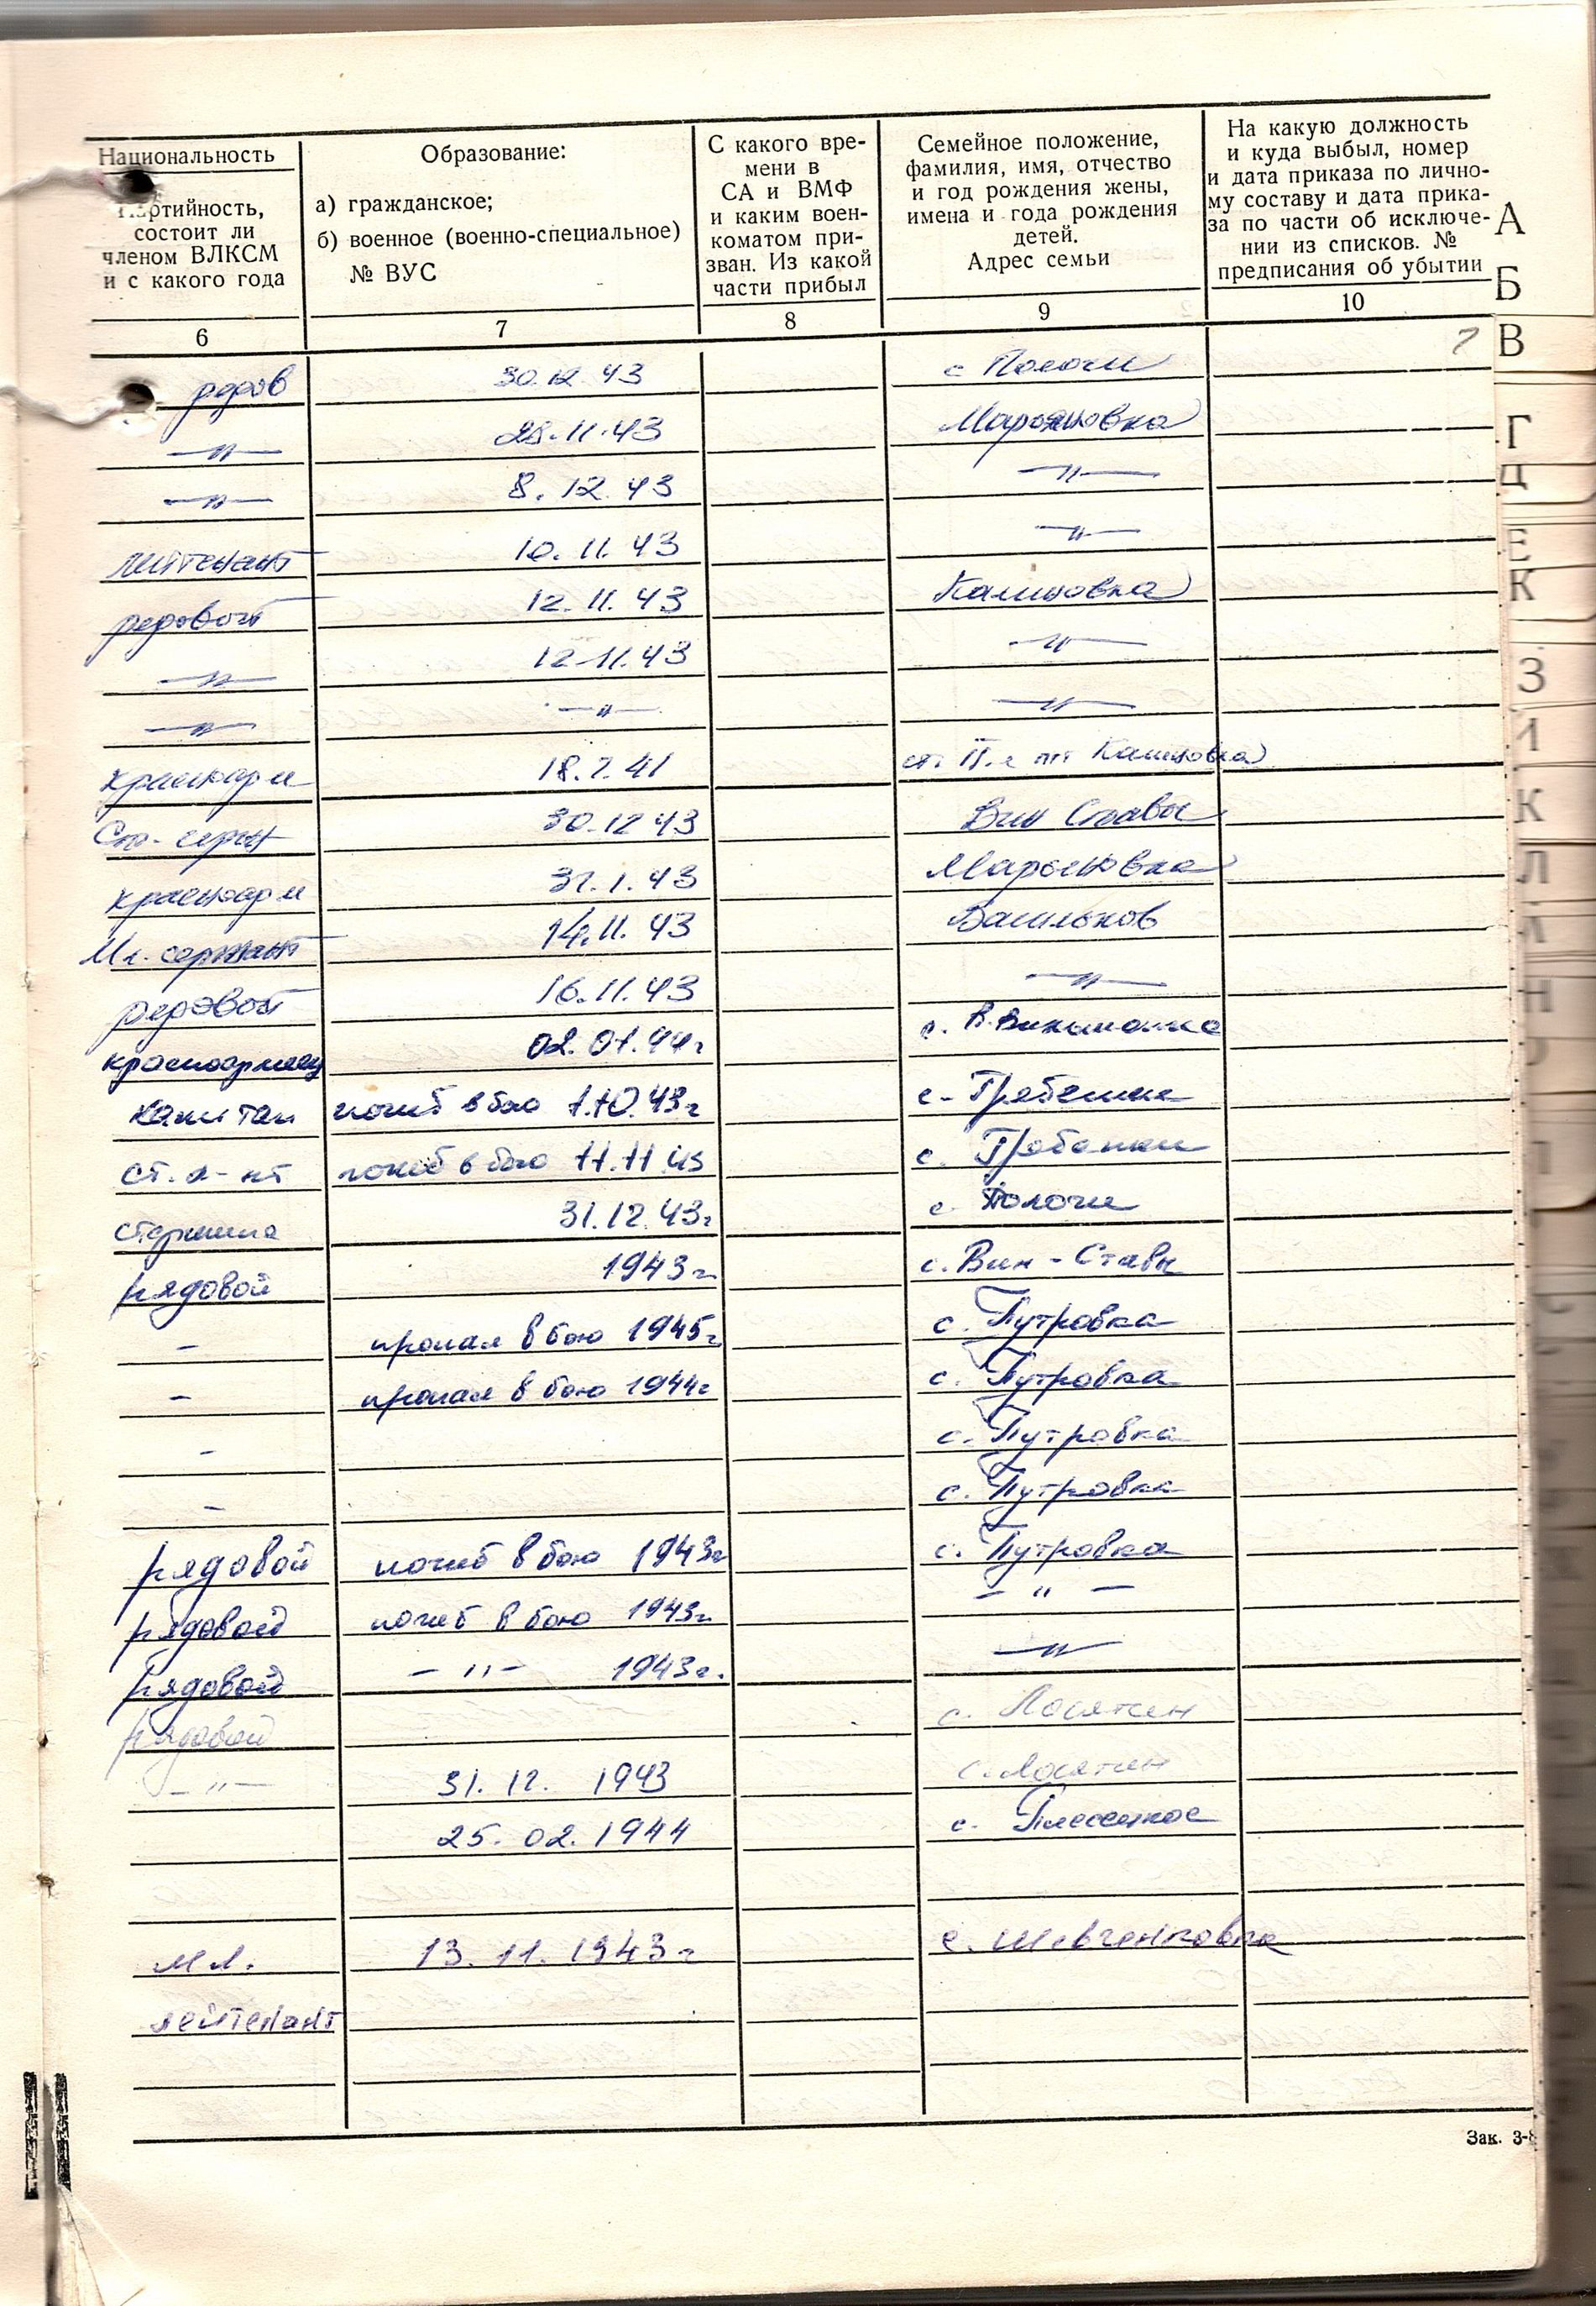 Национальность
Партийность,
состоит ли
членом ВЛКСМ
и с какого года
Образование:
а) гражданское;
б) военное (военно-специальное)
№ ВУС
С какого вре-
мени в
СА и ВМФ
и каким воен-
коматом при-
зван. Из какой
части прибыл
Семейное положение,
фамилия, имя, отчество
и год рождения жены,
имена и года рождения
детей.
Адрес семьи
На какую должность
и куда выбыл, номер
и дата приказа по лично-
му составу и дата прика-
за по части об исключе-
нии из списков. №
предписания об убытии
6 7 8 9 10
рядов 30.12.43 с Пологи
—"— 28.11.43 Марьяновка
—"— 8.12.43 —"—
лейтенант 10.11.43 —"—
рядовой 12.11.43 Калиновка
—"— 12.11.43 —"—
—"— —"— —"—
красноарм 18.7.41 Калиновка
Ст. сержт 30.12 43 Вин Ставы
красноарм 31.1.43 Марьяновка
Мл. сержант 14.11.43 Васильков
рядовой 16.11.43 —"—
красноармеец 02.01.44г с.
капитан погиб в бою 1.10.43г с. Гребенки
ст. л-нт погиб в бою 11.11.43 с. Гребенки
старшина 31.12.43г с. Пологи
рядовой 1943г с. Вин-Ставы
- пропал в бою 1945г с. Путровка
- пропал в бою 1944г с. Путровка
- с. Путровка
- с. Путровка
рядовой погиб в бою 1943г с. Путровка
рядовой погиб в бою 1943г. — " —
рядовой — " — 1943г. —"—
рядовой с. Лосятин
— " — 31.12. 1943 с. Лосятин
25.02.1944 с. Плесецкое
мл. 13.11.1943г с. Шевченковка
лейтенант
Зак. 3-8
А
Б
В
Г
Д
Е
К
З
К
Л
Н